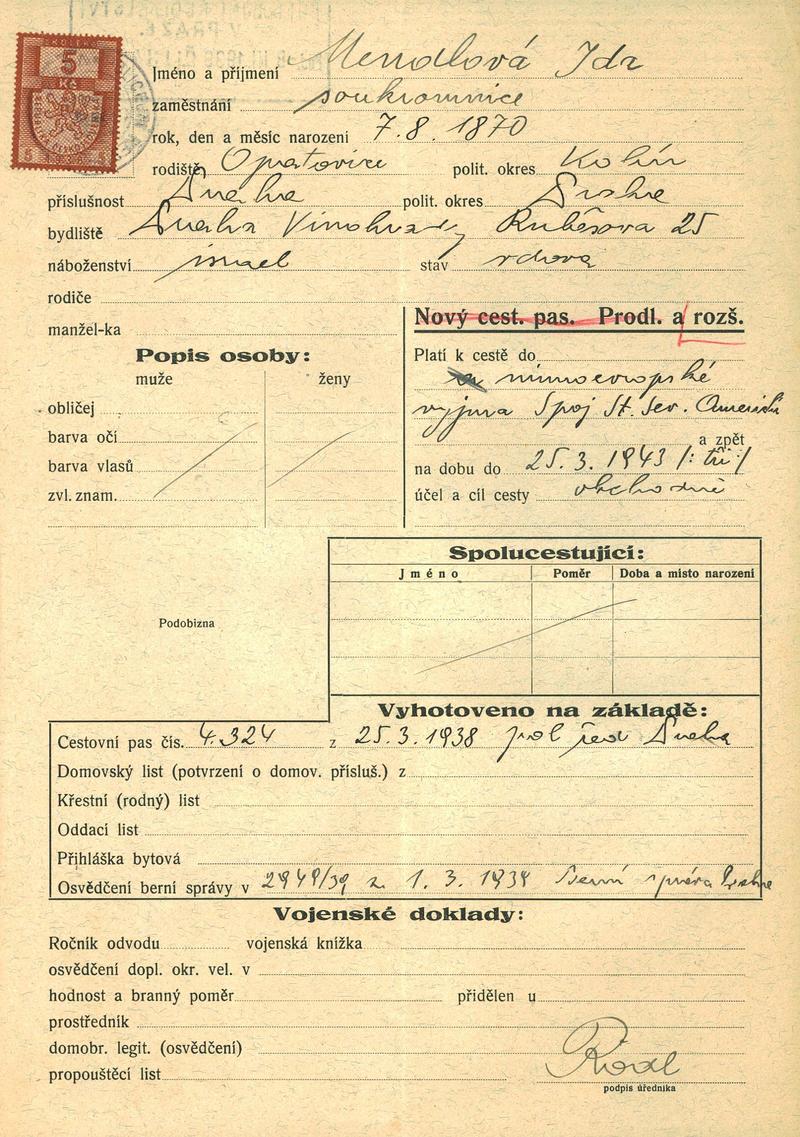 5
Kč
Jméno a příjmení Mendlová Ida
zaměstnání soukromnice
rok, den a měsíc narození 7. 8. 1870
rodiště Opatovice polit. okres Kolín
příslušnost Praha polit. okres Praha
bydliště Praha Vinohrady Rubešova 25
náboženství israel stav vdova
rodiče
manžel-ka
Nový cest. pas. Prodl. a rozš.
Popis osoby:
muže ženy
obličej
barva očí
barva vlasů
zvl. znam.
Platí k cestě do
mimoevropské
vyjma Spoj St. Sev. Americk
a zpět
na dobu do 25. 3. 1943 /: tři /
účel a cíl cesty obchodně
Spolucestující:
Jméno Poměr Doba a místo narození
Podobizna
Vyhotoveno na základě:
Cestovní pas čís. 4.324 z 25. 3. 1938 pol řed Praha
Domovský list (potvrzení o domov. přísluš.) z
Křestní (rodný) list
Oddací list
Přihláška bytová
Osvědčení berní správy v 2949/39 z 1. 3. 1939 Berní správa Praha
Vojenské doklady:
Ročník odvodu vojenská knížka
osvědčení dopl. okr. vel. v
hodnost a branný poměr přidělen u
prostředník
domobr. legit. (osvědčení)
propouštěcí list
podpis úředníka